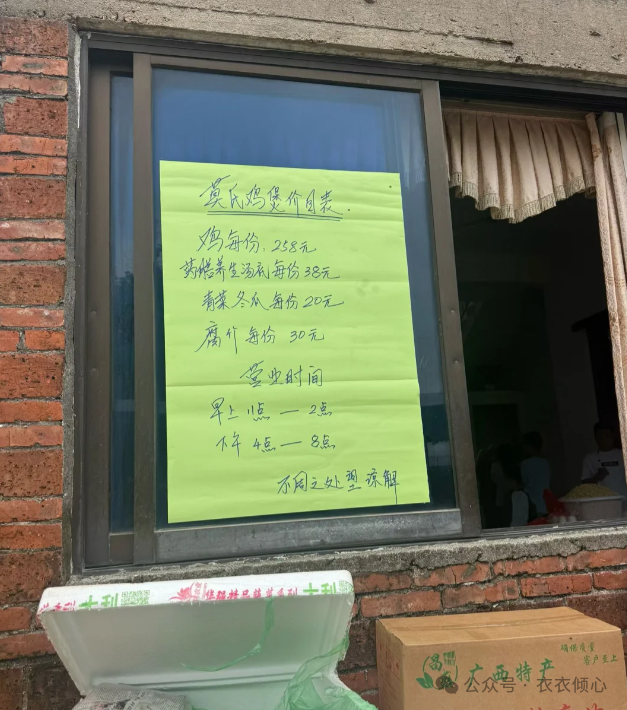 莫氏鸡煲价目表
鸡每份:258元
药膳养生汤底每份38元
青菜冬瓜每份20元
腐竹每份 30元
营业时间
早上11点—2点
下午4点—8点
不周之处望谅解
广西特产
确保质量
客户至上
公众号·衣衣倾心